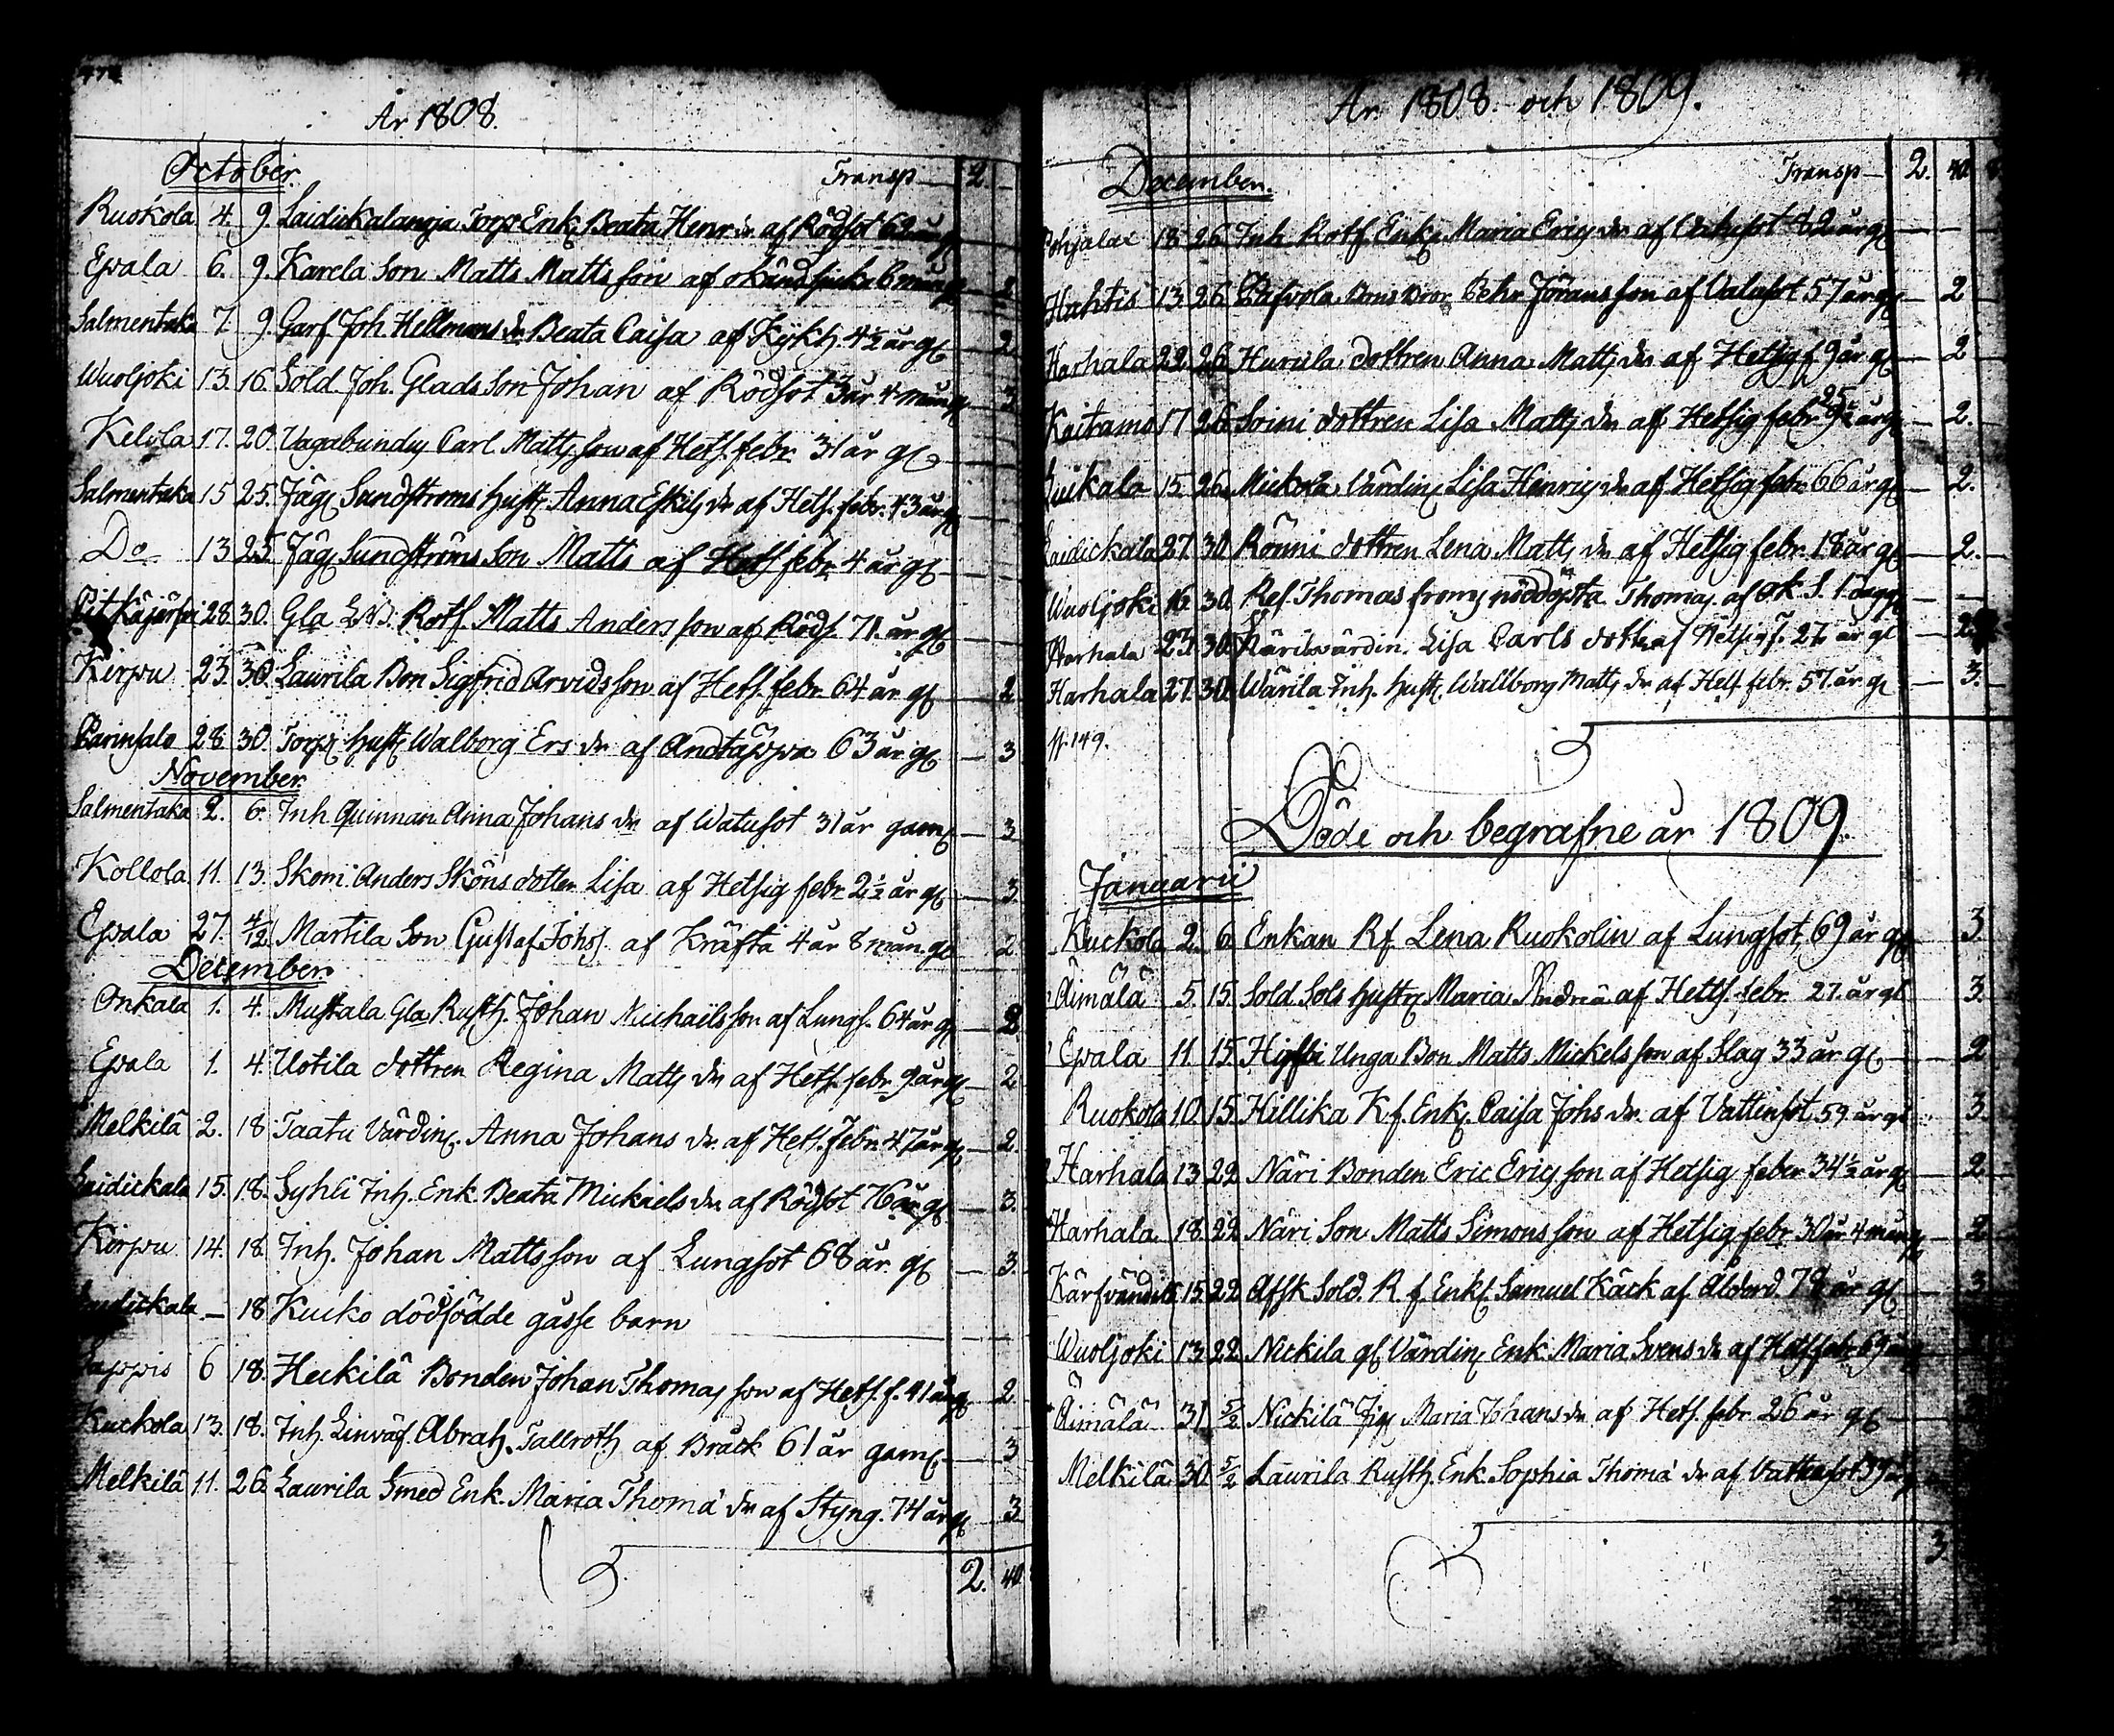 År 1808.
October. Transp — 2. —
Ruokola 4. 9. Laidickalanoja Torp Enk. Beata Henr dr af Rödsot 62 år
Epala 6. 9. Karela Son Matts Matts son af okänd sjuka 6 mån 2
Salmentaka 7 9. Garf Joh. Hellmans dr Beata Caisa af Kykh. 4½ år gl 2
Wuoljoki 13. 16. Sold Joh. Glads Son Johan af Rödsot 3 år 4 mån g 3
Kelvola 17. 20. Vagabundus Carl Matts son af Hets. febr. 31 år gl
Salmentaka 15 25. Jäg Sundströms hust. Anna Eskils dr af Hets. febr. 43 år g
Do 13 25. Jäg Sundströms Son Matts af Hets febr 4 år gl
28. 30. Gla Rotf. Matts Anders son af Röds. 71. år gl
Kirpu 23. 30. Laurila Bon Sigfrid Arvids son af Hets. febr 64 år gl 2
Parinsalo 28. 30. Torp hust Walborg Ers dr af Andtäppa 63 år gl — 3
November.
Salmentaka 2. 6. Inh Quinnan Anna Johans dr af Watusot 31 år gam — 3
Kollola 11. 13. Skom. Anders Sköns dotter Lisa af Hetsig febr 2½ år gl — 3
Epala 27. 4/12 Martila Son Gustaf Johs s. af Kräfta 4 år 8 mån. gl 2
December.
Onkala 1. 4. Mustala Gla Rusth. Johan Michails son af Lungs. 64 år gl — 2
Epala 1. 4 Uotila dottren Regina Matts dr af Hets. febr 9 år gl — 2
Melkilä 2. 18 Taatu Värdin. Anna Johans dr. af Hets. febr. 47 år gl — 2.
Laidickala 15. 18. Syhli Inh. Enk Beata Mickaels dr af Rödsot 76 år gl — 3.
Kirpu 14. 18 Inh. Johan Matts son af Lungsot 68 år gl — 3.
Laidickala — 18 Kuko dödfödde gåsse barn
Sappis 6 18. Heikilä Bonden Johan Thomas son af Hets. f. 41 år g 2
Kuckola 13. 18. Inh. Linväf. Abrah. Tallroth af Bråck 61 år gam — 3
Melkilä 11. 26 Laurila Smed Enk. Maria Thoma dr af Styng. 74 år gl 3
2. 40
Ar. 1808. och 1809.
December. Transp — 2. 40.
Pohjala 18 26 Inh. Rotf. Enk. Maria Erics dr af 42 år gl
Hahtis 13. 26 Bons Bror Pehr Jörans son af 57 år gl — 2
Harhala 22 26 Hurula dottren Anna Matts dr af Hetsig f. 9 år gl — 2
Kaitamo 17 26 Soini dottren Lisa Matts dr af Hetsig febr. 25 år gl — 2.
15. 26 Mickola Värdin Lisa Henrics dr af Hetsig febr 66 år gl — 2.
Laidickala 27. 30. Rönni dottren Lena Matts dr af Hetsig febr. 18 år gl — 2.
Wuoljoki 16. 30 Ref. Thomas froms nöddöpta Thomas. af ok. S. 1. dag g
Harhala 23. 30. Värdin. Lisa Carls dott af Hetsig f. 27 år gl — 2
Harhala 27. 30. Wärila Inh. hust. Wallborg Matts dr af Hets febr. 57. år gl — 3.
149.
Döde och begrafne år 1809.
Januarii
Kuckola 2. 6. Enkan Rf Lena Ruokolin af Lungsot 69 år gl 3.
Äimälä 5. 15. Sold Sols hustr Maria Andreä af Hetts. febr 27. år gl 3.
Epala 11. 15. Unga Bon Matts Mickels son af Slag 33 år gl. — 2
Ruokola 10. 15. Hillika Kf. Enk. Caisa Johs dr. af Vattensot 59 år gl 3.
Harhala 13. 22 Näri Bonden Eric Erics son af Hetsig feber 34½ år gl 2
Harhala 18. 22 Näri Son Matts Simons son af Hetsig febr. 30 år 4 mån g — 2
15. 22 Afsk Sold. R f. Enkl. Samuel Käck af Ålderd. 78 år gl 3
Wuoljoki 13. 22. Nickila gl Värdin Enk Maria Svens dr af Hets febr 69
Äimälä 31 5/2 Nickilä Pig Maria Johans dr af Hets. febr 26 år gl
Melkilä 30 5/2 Laurila Rusth. Enk. Sophia Thoma dr af Vattensot
3